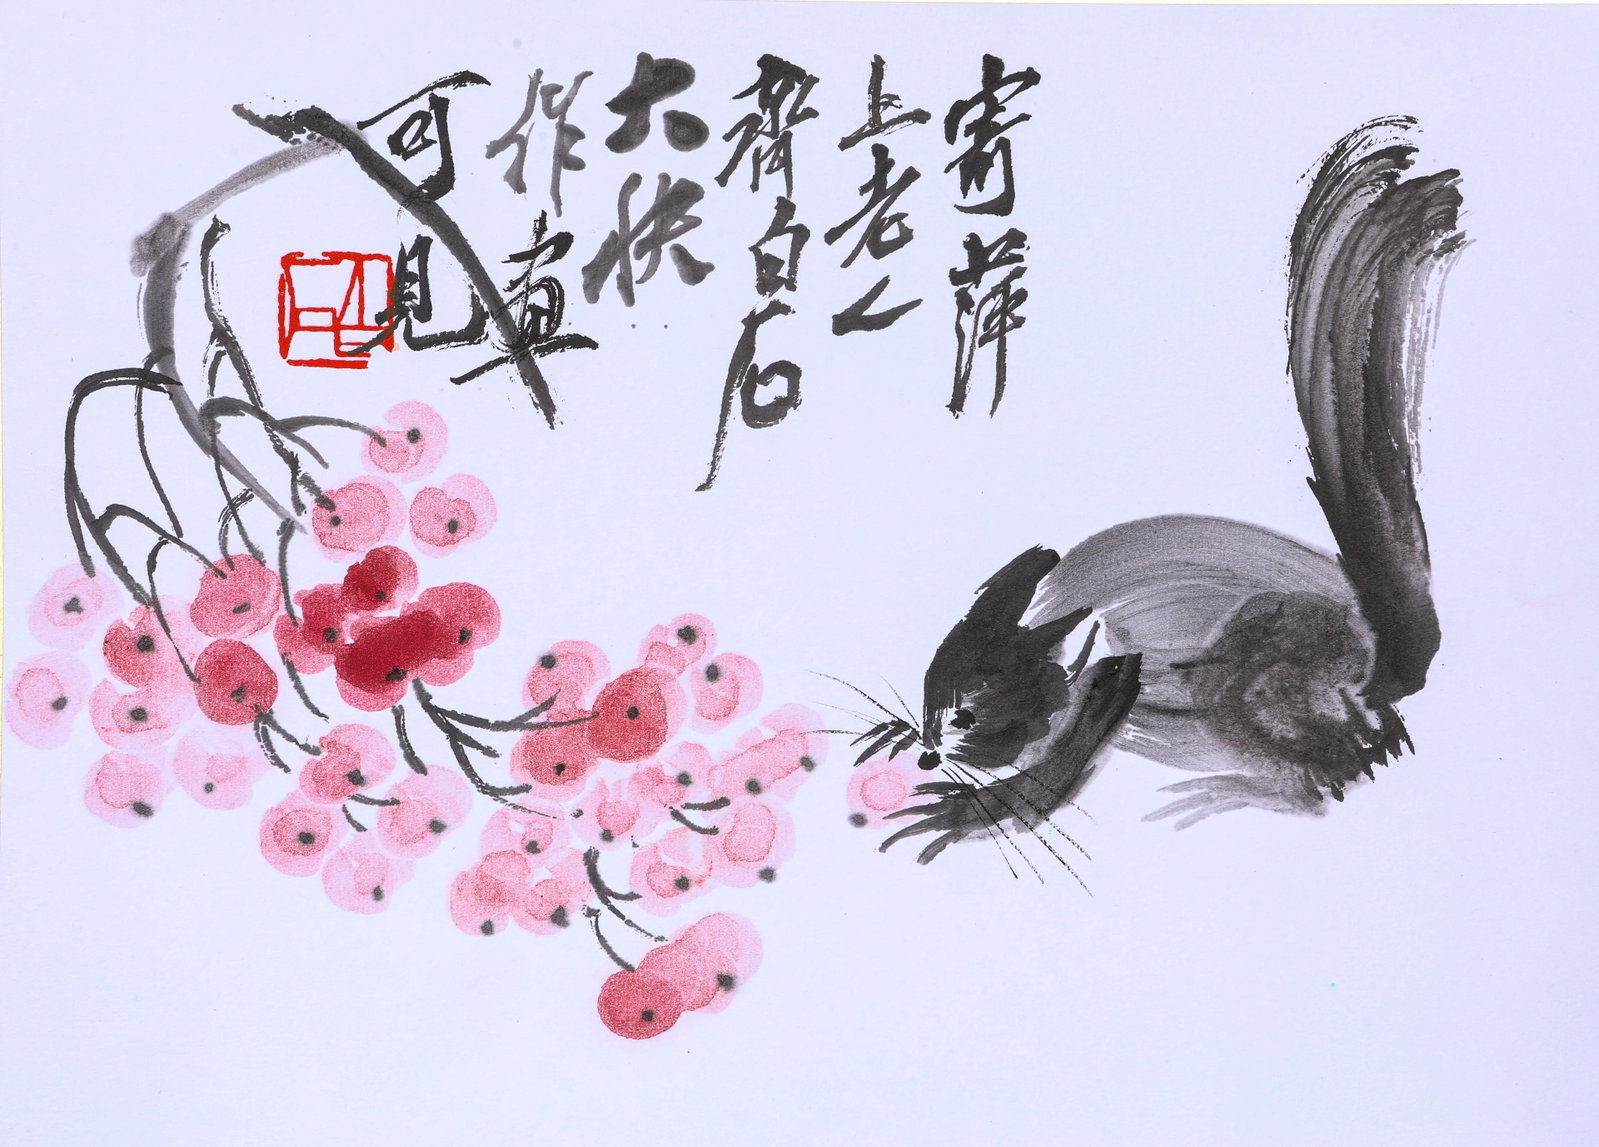 寄萍
上老人
齊白石
大快
作画
可見